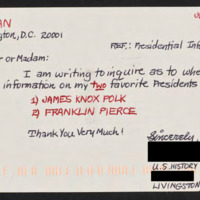 AN
gton, D.C. 20001
REF.: Presidential Inf
r or Madam:
I am writing to inquire as to whe
information on my two favorite Presidents
1) JAMES KNOX POLK
2) FRANKLIN PIERCE
Thank You Very Much!
Sincerely,
U.S. HISTORY
LIVINGSTON